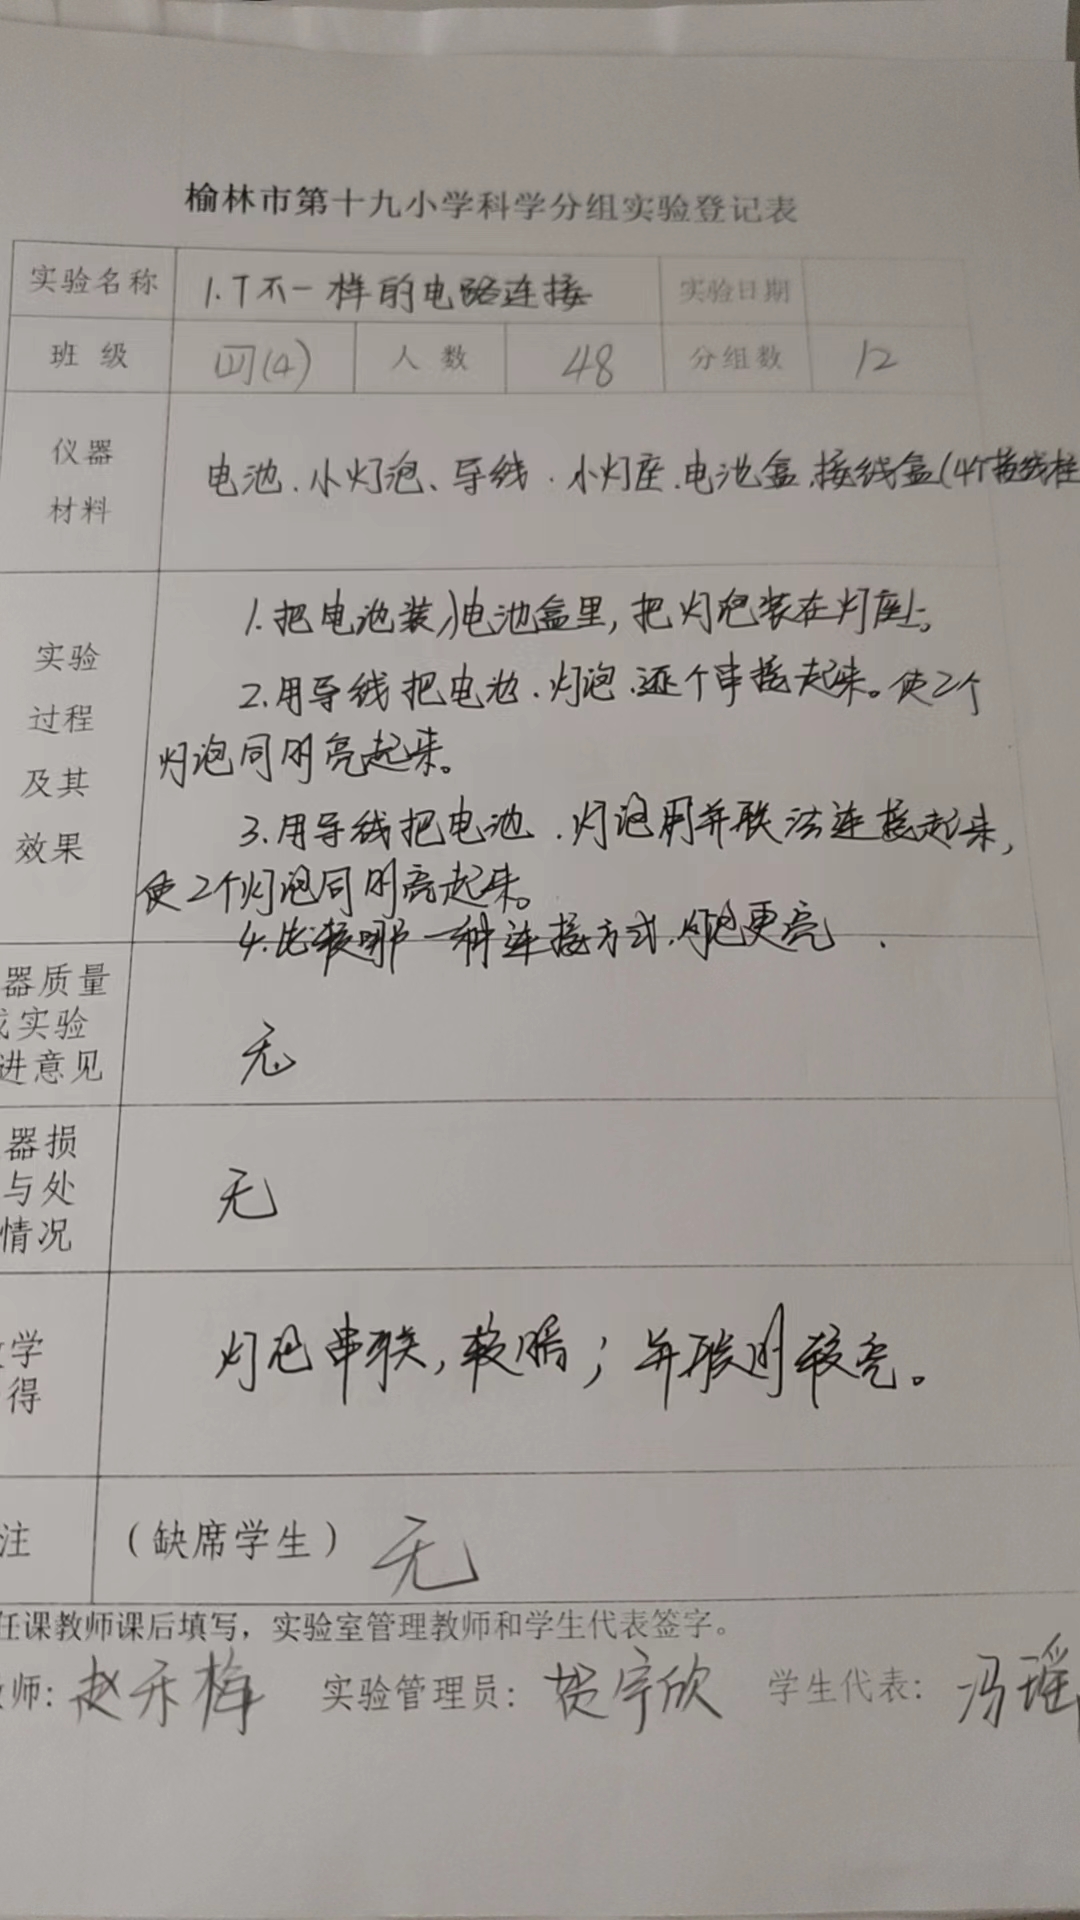 榆林市第十九小学科学分组实验登记表
实验名称 1.7不一样的电路连接 实验日期
班 级 四(4) 人 数 48 分组数 12
仪器
材料
电池、小灯泡、导线、小灯座、电池盒、接线盒(4个接线柱
实验
过程
及其
效果
1.把电池装入电池盒里,把灯泡装在灯座上。
2.用导线把电池、灯泡、逐个串接起来。使2个
灯泡同时亮起来。
3.用导线把电池、灯泡用并联法连接起来,
使2个灯泡同时亮起来。
4.比较哪一种连接方式,灯泡更亮.
器质量
实验
进意见
无
器损
与处
情况
无
学
得
灯泡串联,较暗;并联时较亮。
注 (缺席学生) 无
任课教师课后填写,实验室管理教师和学生代表签字。
师: 赵禾梅 实验管理员: 贺宇欣 学生代表: 冯瑶